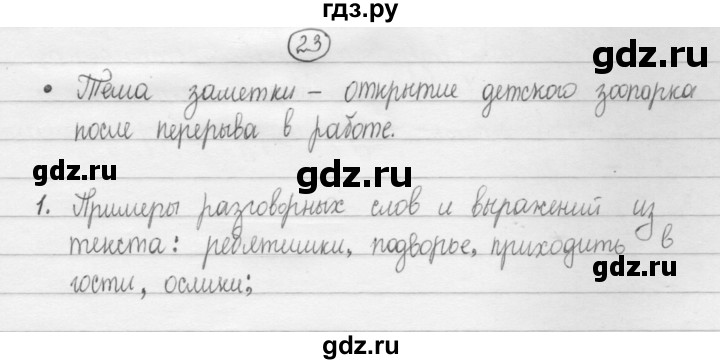 гдз.ру
23
gdz.ru
• Тема заметки – открытие детского зоопарка
после перерыва в работе.
gdz.ru
gdz.ru
1. Примеры разговорных слов и выражений из
текста: ребятишки, подворье, приходить в
gdz.ru
гости, ослики;
gdz.ru
gdz.ru